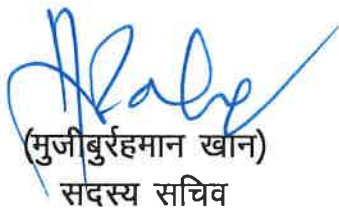 (मुजीबुर्रहमान खान)
सदस्य सचिव